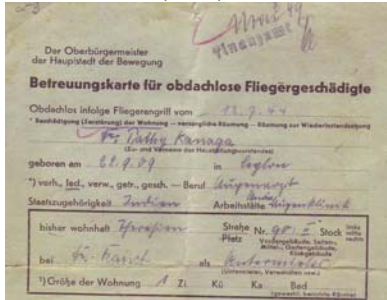 Der Oberbürgermeister
der Hauptstadt der Bewegung
Finanzamt
Betreuungskarte für obdachlose Fliegergeschädigte
Obdachlos infolge Fliegerangriff vom 12.7.44
* Beschädigung (Zerstörung) der Wohnung — vorsorgliche Räumung — Räumung zur Wiederinstandsetzung
Dr. Kanaga
(Zu- und Vorname des Haushaltungsvorstandes)
geboren am 22.9.09 in Ceylon
*) verh., led., verw., getr., gesch. — Beruf Augenarzt
Staatszugehörigkeit Indien Arbeitsstätte Augenklinik
bisher wohnhaft Theresien Straße Platz Nr. 98 II Stock links mitte rechts
Vordergebäude, Seiten-, Mittel-, Gartengebäude, Rückgebäude
bei Fr. als Untermieter
(Untermieter, Verwandten usw.)
*) Größe der Wohnung 1 Zi. Kü Ka Bad